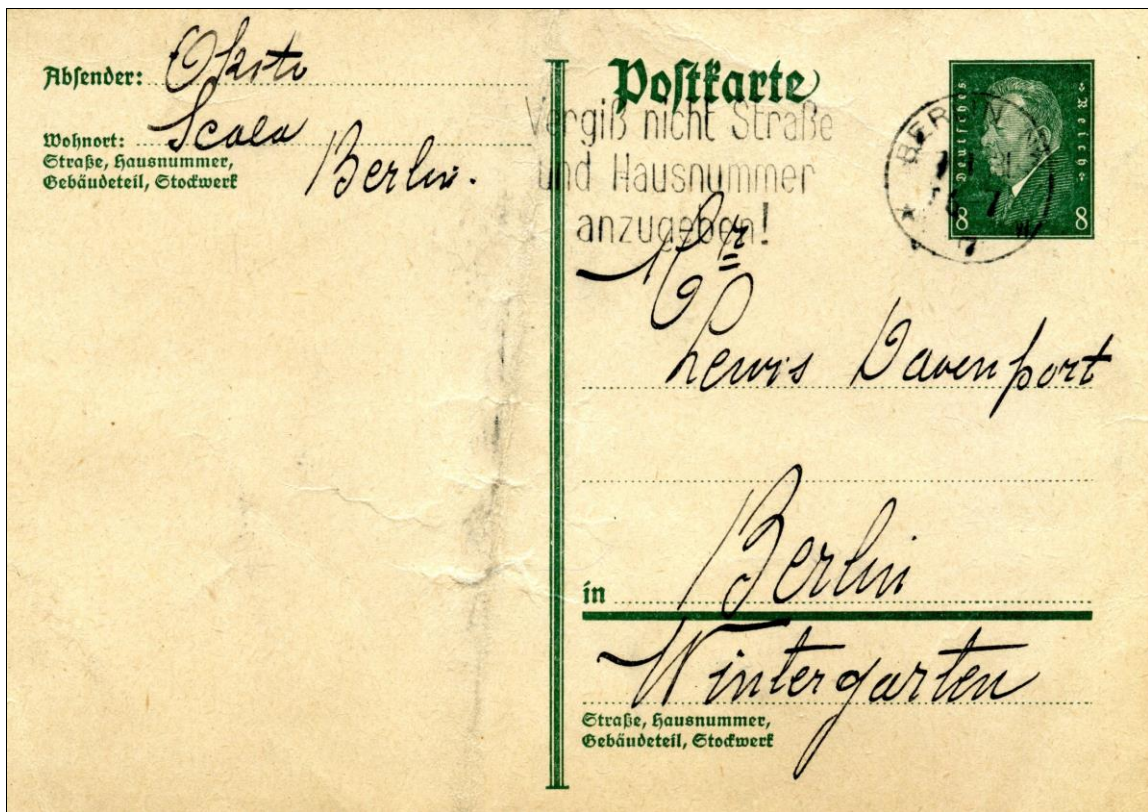 Absender: Okito
Wohnort: Scala
Straße, Hausnummer,
Gebäudeteil, Stockwerk
Berlin.
Postkarte
Vergiß nicht Straße
und Hausnummer
anzugeben!
Deutsches Reich
8 8
BERLIN
Mr
Lewis Davenport
in Berlin
Wintergarten
Straße, Hausnummer,
Gebäudeteil, Stockwerk